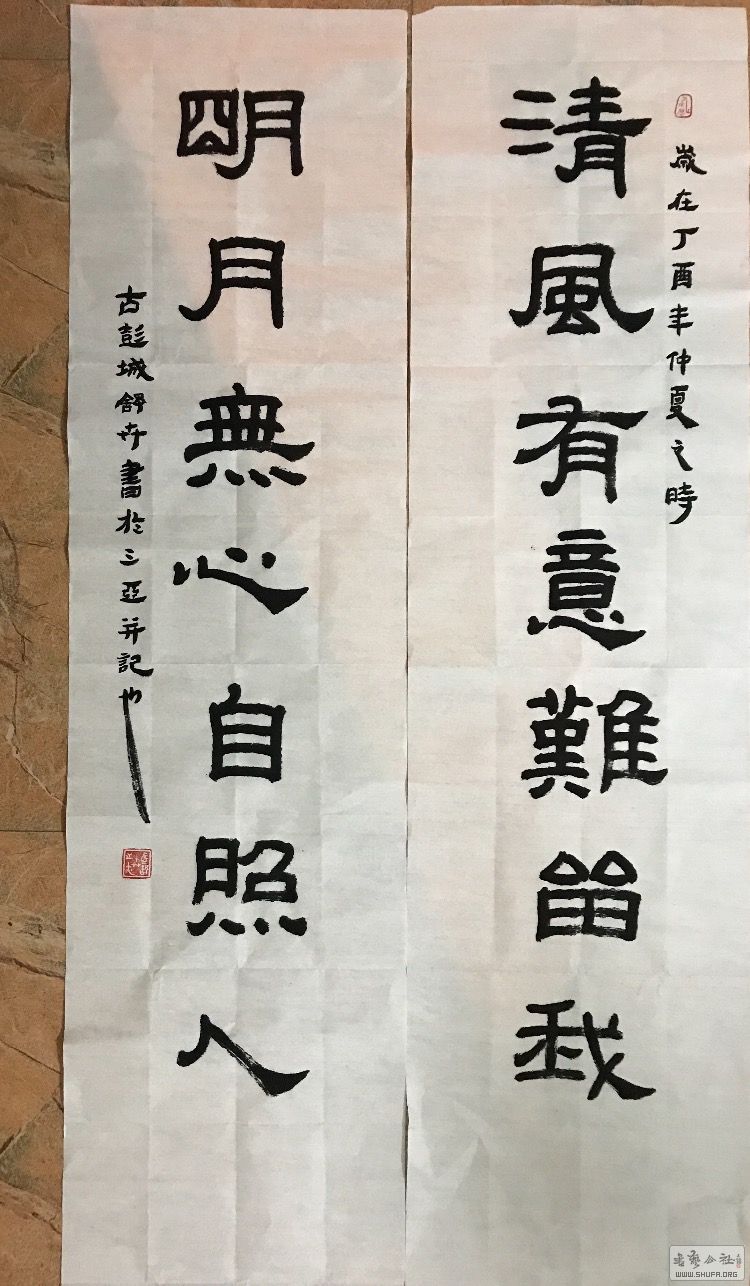 歲在丁酉年仲夏之時
清風有意難留我
明月無心自照人
古彭城舒卉書於三亞并記也
WWW.SHUFA.ORG